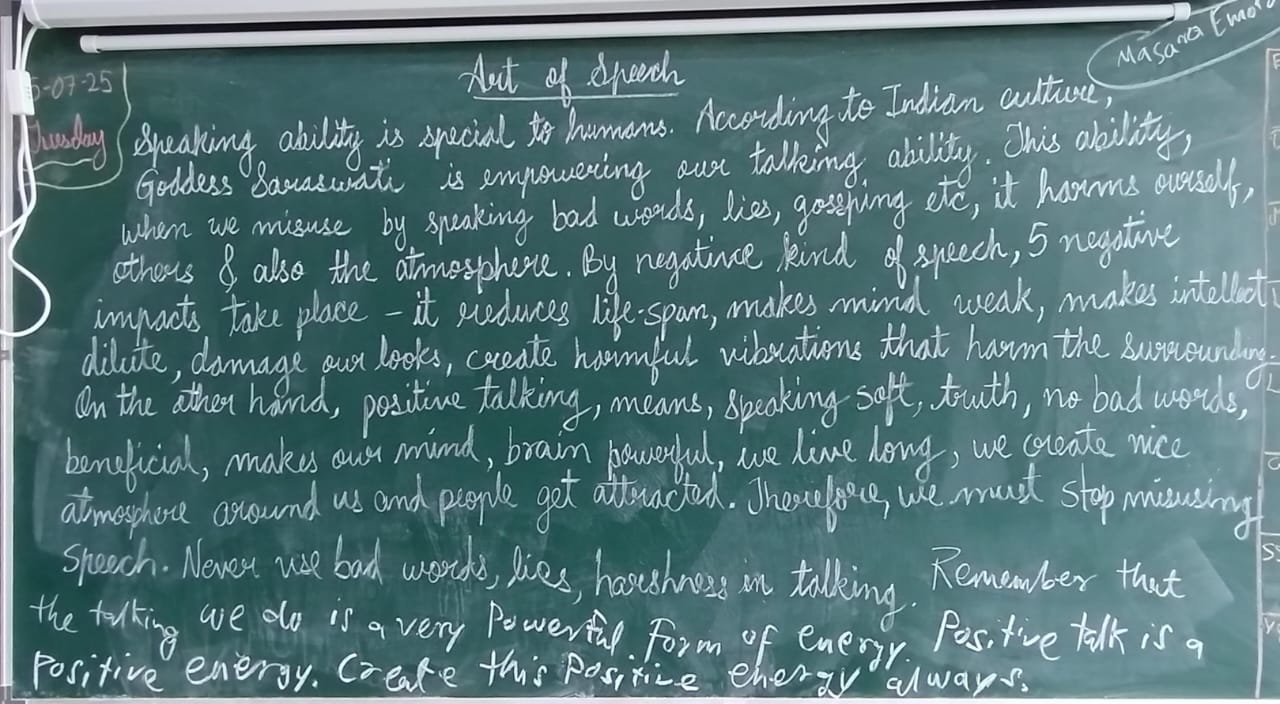 Masara
Art of Speech
5-07-25
Tuesday
Speaking ability is special to humans. According to Indian culture,
Goddess Saraswati is empowering our talking ability. This ability,
when we misuse by speaking bad words, lies, gossping etc, it harms ourself,
others & also the atmosphere. By negatince kind of speech, 5 negative
impacts take place - it reduces life-span, makes mind weak, makes intellect
dilute, damage our looks, create harmful vibrations that harm the surrounding.
On the other hand, positive talking, means, speaking soft, truth, no bad words,
beneficial, makes our mind, brain powerful, we live long, we create nice
atmosphere around us and people get attracted. Therefore, we must stop misusing
speech. Never use bad words, lies, harshness in talking. Remember that
the talking we do is a very Powerful Form of energy. Positive talk is a
positive energy. Create this Positive energy always.